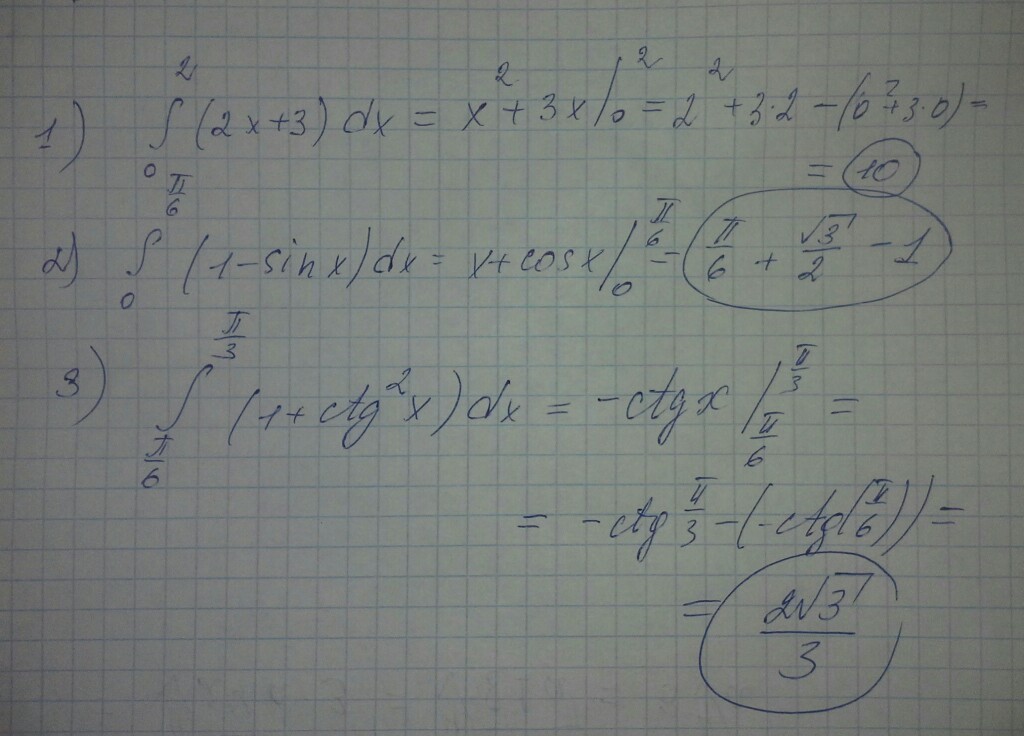 1) ∫₀² (2x+3) dx = x² + 3x |₀² = 2² + 3·2 − (0² + 3·0) =
= 10
2) ∫₀^(π/6) (1−sin x) dx = x + cos x |₀^(π/6) = π/6 + √3/2 − 1
3) ∫_(π/6)^(π/3) (1 + ctg²x) dx = −ctg x |_(π/6)^(π/3) =
= −ctg π/3 − (−ctg(π/6)) =
= 2√3/3